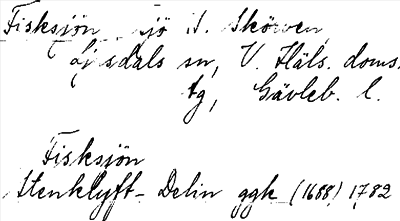 Fisksjön, sjö i. Skörven,
Ljusdals sn, V. Häls. doms.
tg, Gävleb. l.
Fisksjön
Stenklyft - Delin ggk (1688) 1782